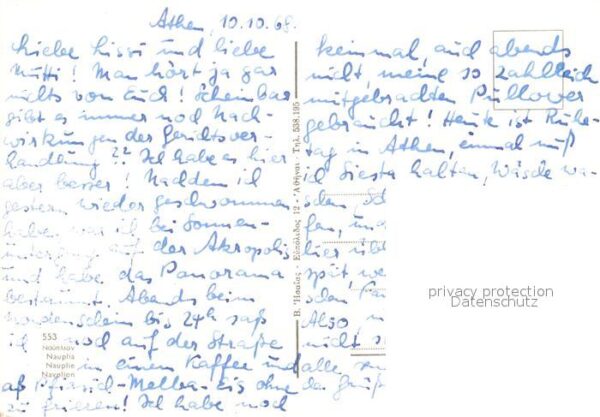 Athen, 10.10.68.
Liebe Lissi und liebe
Mutti! Man hört ja gar
nichts von Euch! Scheinbar
gibt es immer noch Nach-
wirkungen der Gerichtsver-
handlung?? Ich habe es hier
aber besser! Nachdem ich
gestern wieder geschwommen
habe, war ich bei Sonnen-
untergang auf der Akropolis
und habe das Panorama
bestaunt. Abends beim
Mondenschein bis 24h saß
ich noch auf der Straße
in einen Kaffee und
aß Pfirsich-Melba-Eis ohne
zu frieren! Ich habe noch
keinmal, auch abends
nicht, meine so zahlreich
mitgebrachten Pullover
gebraucht! Heute ist Ruhe-
tag in Athen, einmal muß
ich Siesta halten, Wäsche wa-
schen, Sch
fen, und
hier übt
spät, we
den Fa
Also,
nicht s
alle,
der Grüß
553
Ναύπλιον
Nauplia
Nauplie
Navplion
Β. Ἡσαΐας - Εὐπόλιδος 12 - Ἀθῆναι - Τηλ. 538.195
privacy protection
Datenschutz